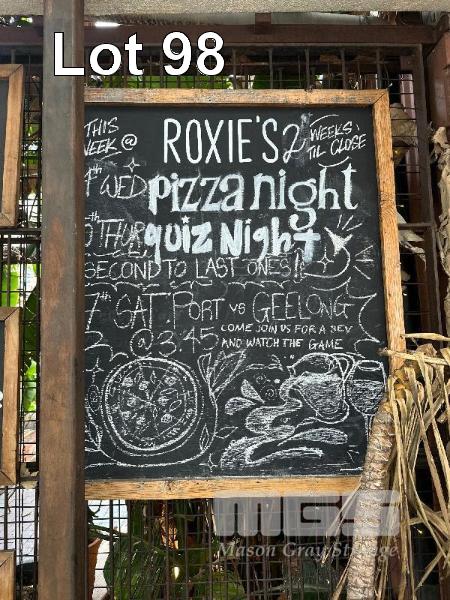 Lot 98
THIS
WEEK @
ROXIE'S
2 WEEKS
TIL CLOSE
WED pizza night
THUR quiz Night
SECOND TO LAST ONES!!
7th SAT PORT vs GEELONG
@ 3:45
COME JOIN US FOR A BEV
AND WATCH THE GAME
MGS
Mason Gray Strange